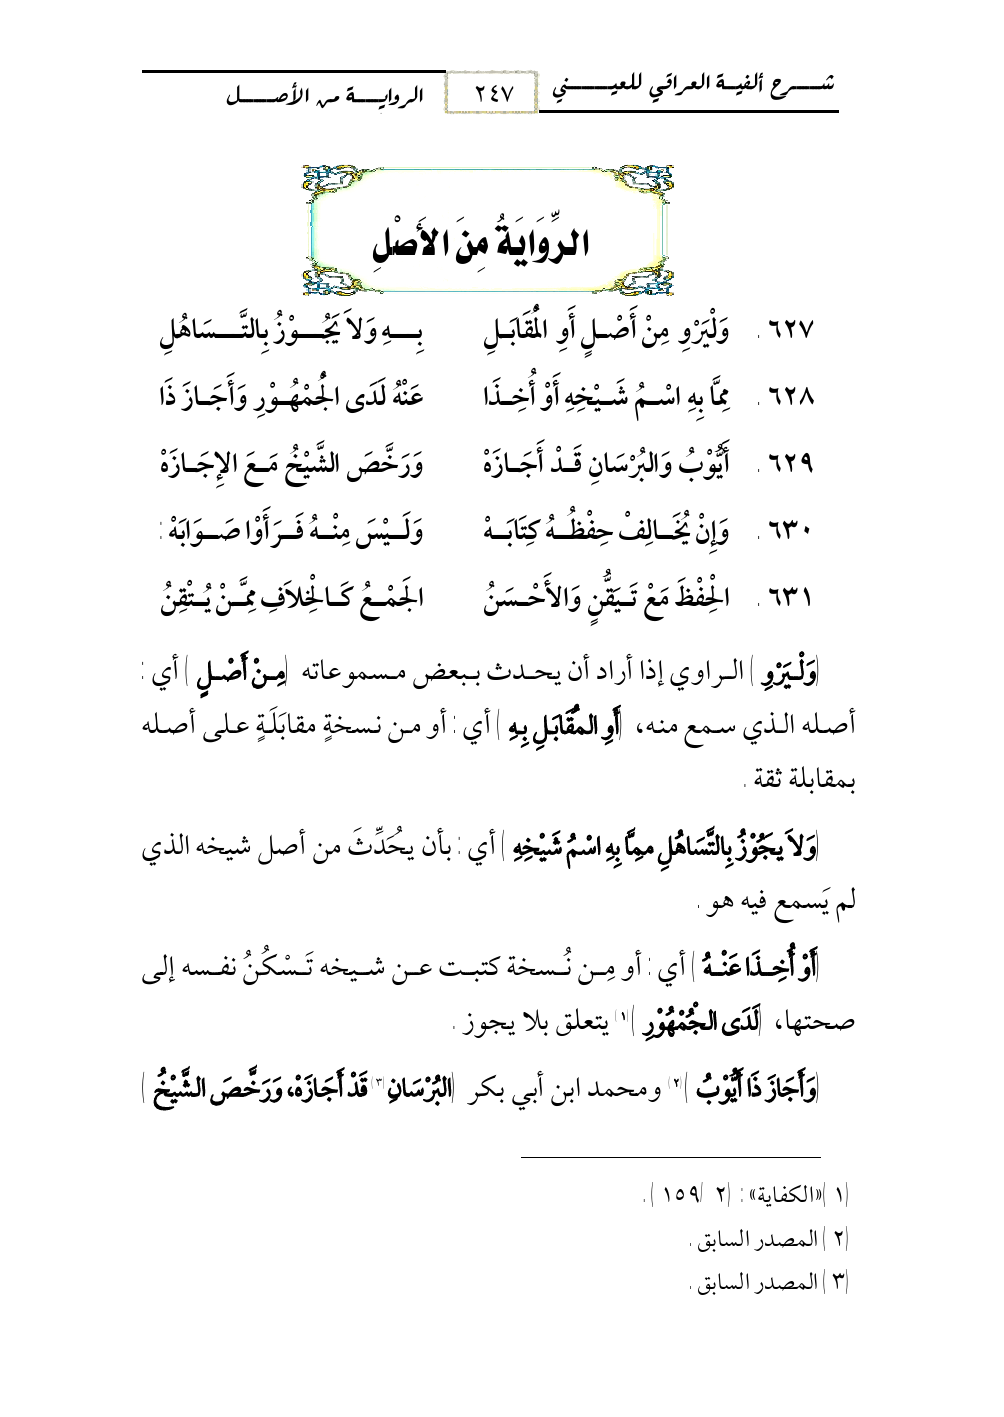 شـــرح ألفيـة العراقي للعينـــــي
٢٤٧
الروايـــة من الأصـــل
الرِّوَايَةُ مِنَ الأَصْلِ
٦٢٧ . وَلْيَرْوِ مِنْ أَصْـلٍ أَوِ المُقَابَـلِ بِـــهِ وَلاَ يَجُـــوْزُ بِالتَّـــسَاهُلِ
٦٢٨ . مِمَّا بِهِ اسْـمُ شَـيْخِهِ أَوْ أُخِـذَا عَنْهُ لَدَى الجُمْهُـوْرِ وَأَجَـازَ ذَا
٦٢٩ . أَيُّوْبُ وَالبُرْسَانِ قَـدْ أَجَـازَهْ وَرَخَّصَ الشَّيْخُ مَـعَ الإِجَـازَهْ
٦٣٠ . وَإِنْ يُخَـالِفْ حِفْظُـهُ كِتَابَـهْ وَلَـيْسَ مِنْـهُ فَـرَأَوْا صَـوَابَهْ :
٦٣١ . الْحِفْظَ مَعْ تَـيَقُّنٍ وَالأَحْـسَنُ الجَمْـعُ كَـالْخِلاَفِ مِمَّـنْ يُـتْقِنُ
(وَلْـيَرْوِ) الـراوي إذا أراد أن يحـدث بـبعض مـسموعاته (مِـنْ أَصْـلٍ) أي :
أصلـه الـذي سـمع منه، (أَوِ المُقَابَلِ بِهِ) أي : أو مـن نـسخةٍ مقابَلَةٍ علـى أصلـه
بمقابلة ثقة .
(وَلاَ يجَُوْزُ بِالتَّسَاهُلِ ممَِّا بِهِ اسْمُ شَيْخِهِ) أي : بأن يحُدِّثَ من أصل شيخه الذي
لم يَسمع فيه هو .
(أَوْ أُخِـذَا عَنْـهُ) أي : أو مِـن نُـسخة كتبـت عـن شـيخه تَـسْكُنُ نفـسه إلى
صحتها، (لَدَى الجُْمْهُوْرِ)(١) يتعلق بلا يجوز .
(وَأَجَازَ ذَا أَيُّوْبُ)(٢) ومحمد ابن أبي بكر (البُرْسَانِ(٣) قَدْ أَجَازَهْ، وَرَخَّصَ الشَّيْخُ)
(١) «الكفاية» : (٢/ ١٥٩) .
(٢) المصدر السابق .
(٣) المصدر السابق .